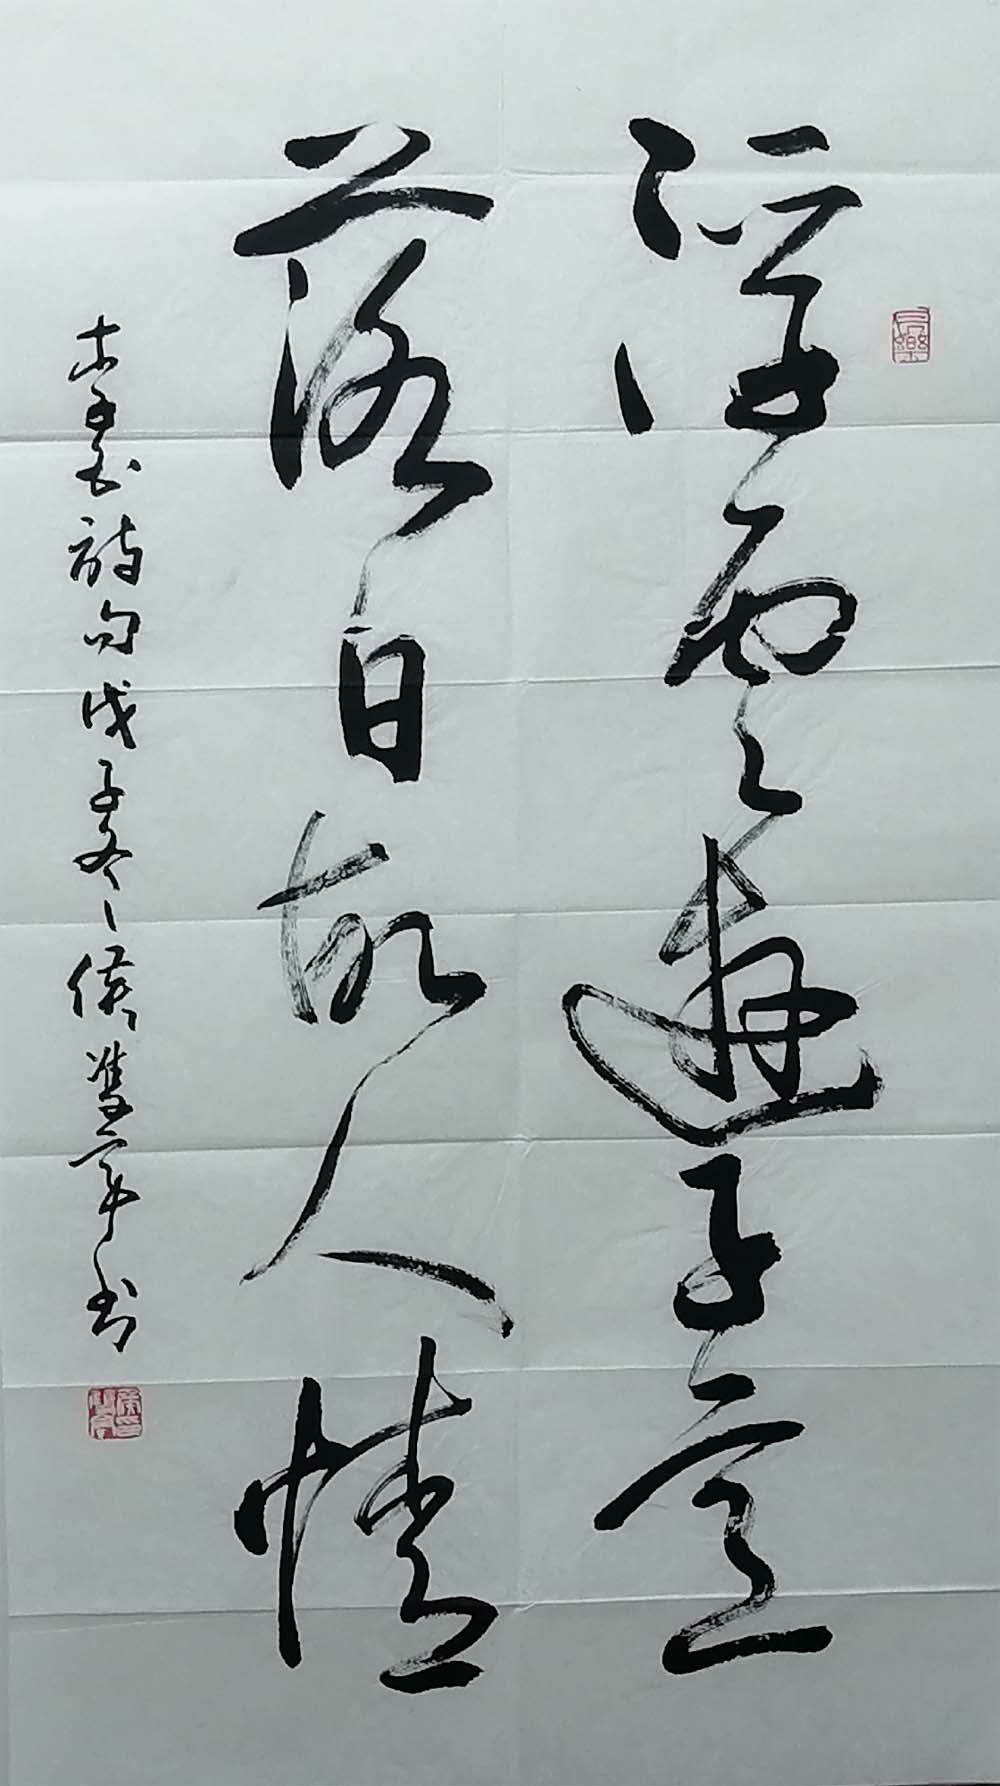 浮云游子意
落日故人情
李白詩句戊子冬